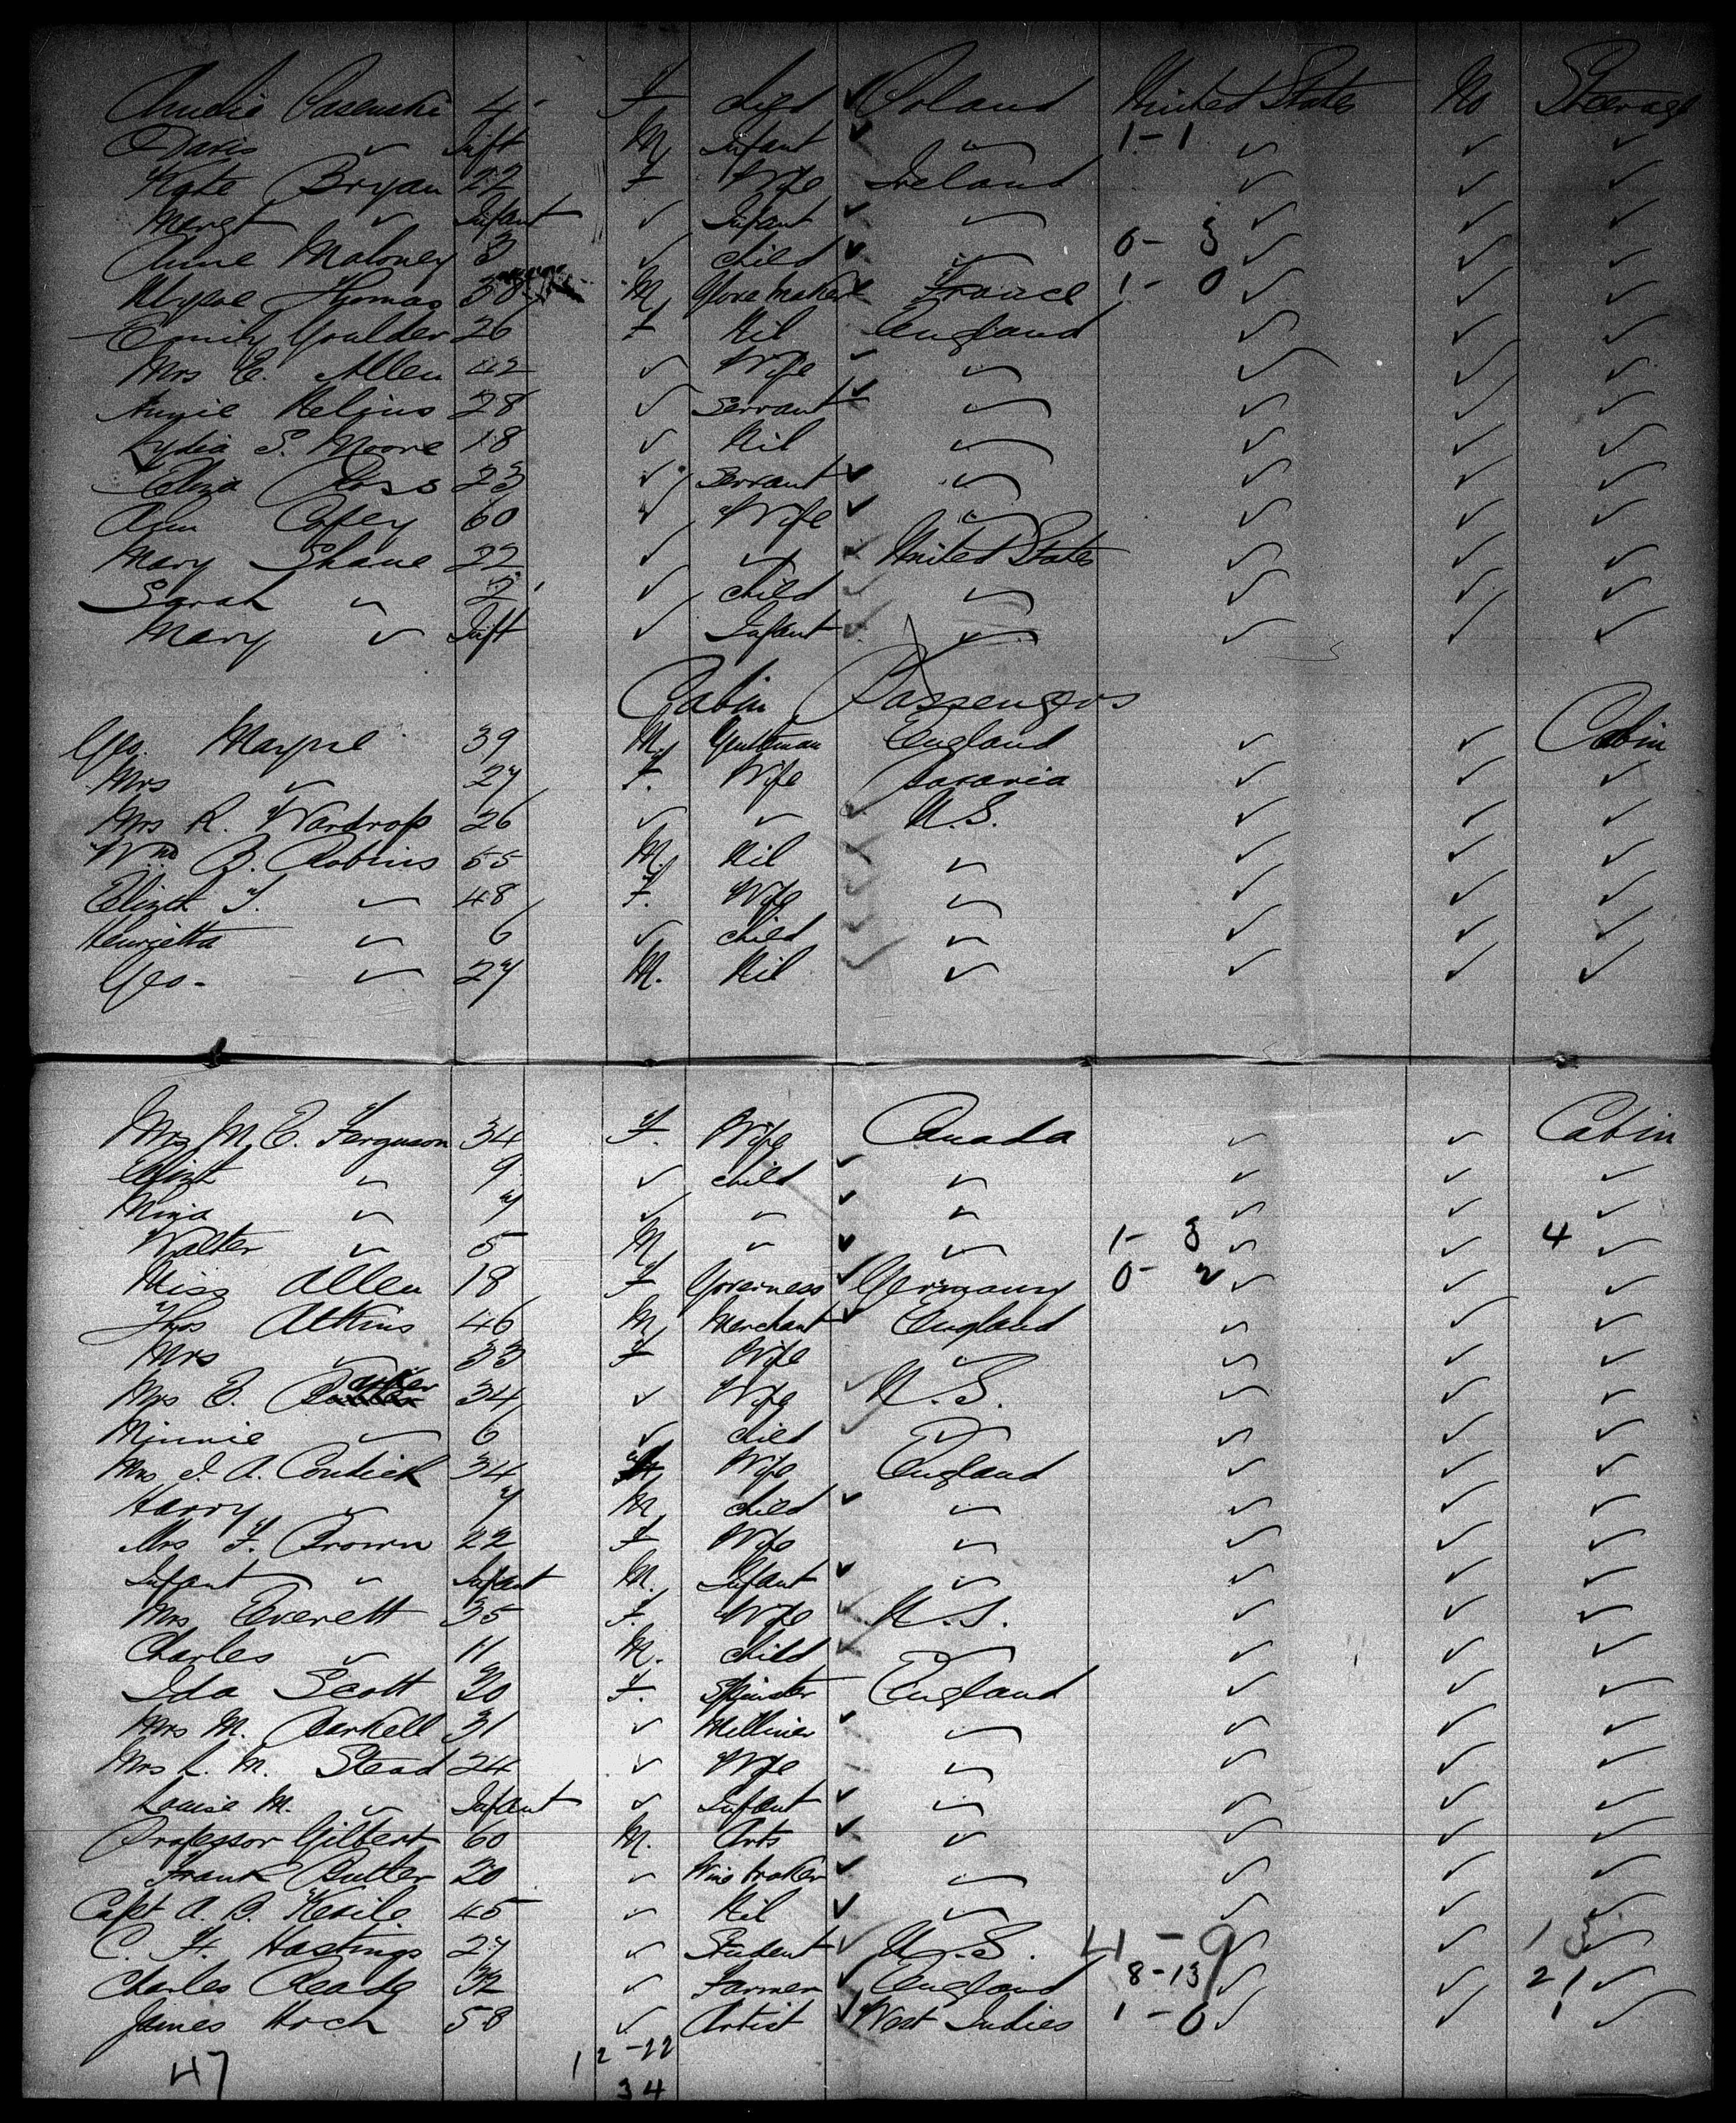 Casenski 4 F. Child Poland United States No Steerage
Davis " Inft M, Infant " 1-1 " " "
Kate Bryan 22 F Wife Ireland " " "
Margt " Infant " Infant " " " "
Anne Maloney 3 " child " 0- 3 " " "
Thomas 38 M, Glove maker France 1- 0 " " "
Emily Goulder 26 F Nil England " " "
Mrs E. Allen 42 " Wife " " " "
Annie 28 " Servant " " " "
Lydia S. Moore 18 " Nil " " " "
Eliza Ross 23 " Servant " " " "
Ann 60 " Wife " " " "
Mary Shane 22 " " United States " " "
Sarah " 2 " child " " " "
Mary " Inft " Infant " " " "
Cabin Passengers
Geo. Mayne 39 M. Gentleman England " " Cabin
Mrs " 27 F. Wife Bavaria " " "
Mrs R. Wardrop 26 " " U.S. " " "
Wm B. Robins 55 M. Nil " " " "
Elizth T. " 48 F. Wife " " " "
Henrietta " 6 " child " " " "
Geo. " 27 M. Nil " " " "
Mrs M. E. Ferguson 34 F. Wife Canada " " Cabin
Elizth " 9 " child " " " "
Mina " 7 " " " " " "
Walter " 5 M, " " 1- 3 " " 4 "
Miss Allen 18 F Governess Germany 0- 2 " " "
Thos Atkins 46 M, Merchant England " " "
Mrs " 33 F Wife " " " "
Mrs E. 34 " Wife U.S. " " "
Minnie " 6 " child " " " "
Mrs J. A. 34 Wife England " " "
Harry " 7 M, child " " " "
Mrs F. Brown 22 F Wife " " " "
Infant " Infant M. Infant " " " "
Mrs Everett 35 F. Wife U.S. " " "
Charles " 11 M. child " " " "
Ida Scott 20 F. Spinster England " " "
Mrs M. Parkell 31 " Milliner " " " "
Mrs L. M. Stead 24 " Wife " " " "
Louise M. " Infant " Infant " " " "
Professor Gilbert 60 M. Arts " " " "
Frank Butler 20 " Wine broker " " " "
Capt A. B. 45 " Nil " " " "
C. H. Hastings 27 " Student U.S. 4-9 " " 13 "
Charles Reade 32 " Farmer England 8-13 " " 21 "
James Hoch 58 " Artist West Indies 1-0 " " 1 "
47 12-22
34